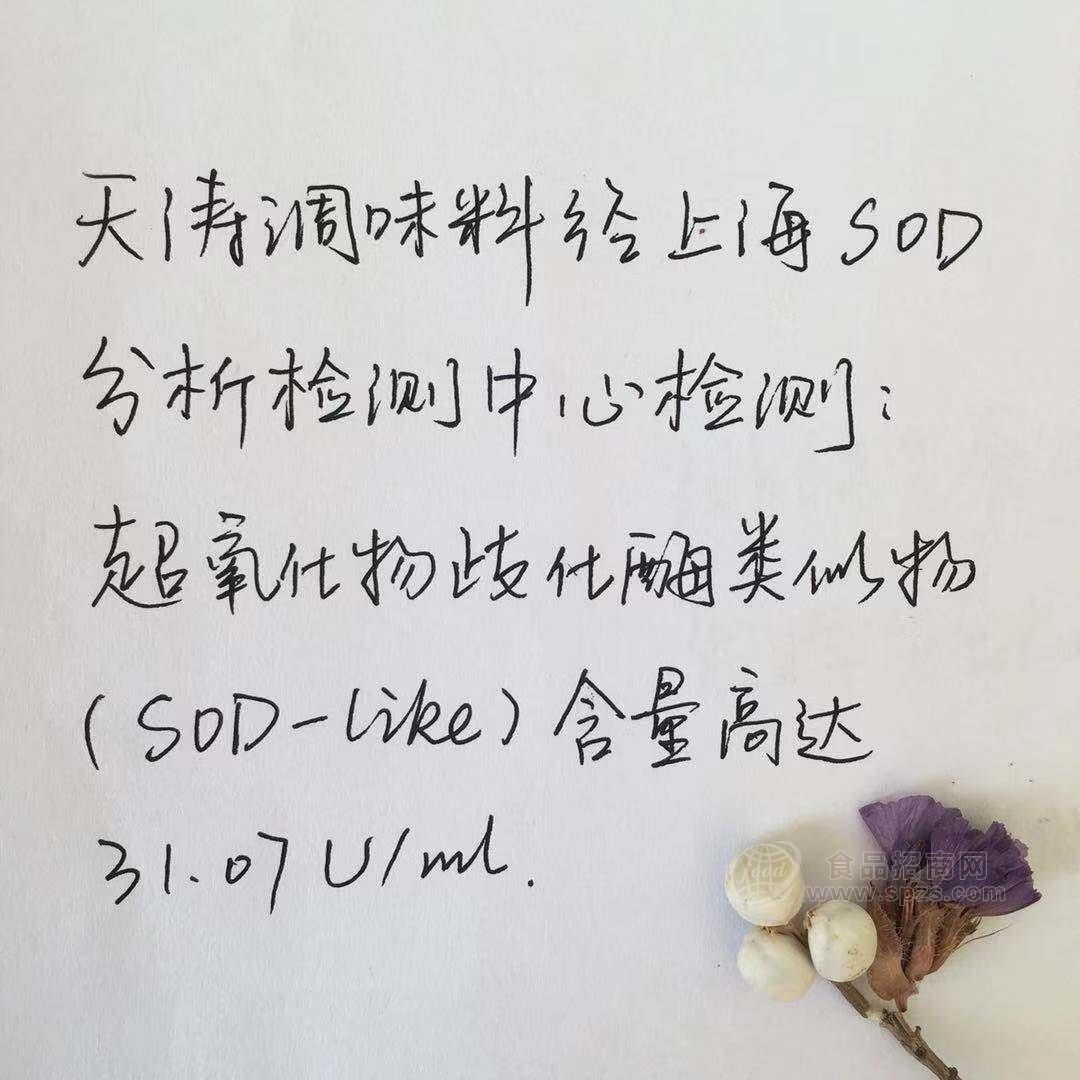 天涛调味料经上海SOD
分析检测中心检测：
超氧化物歧化酶类似物
(SOD-like)含量高达
31.07U/ml.
食品招商网
www.spzs.com